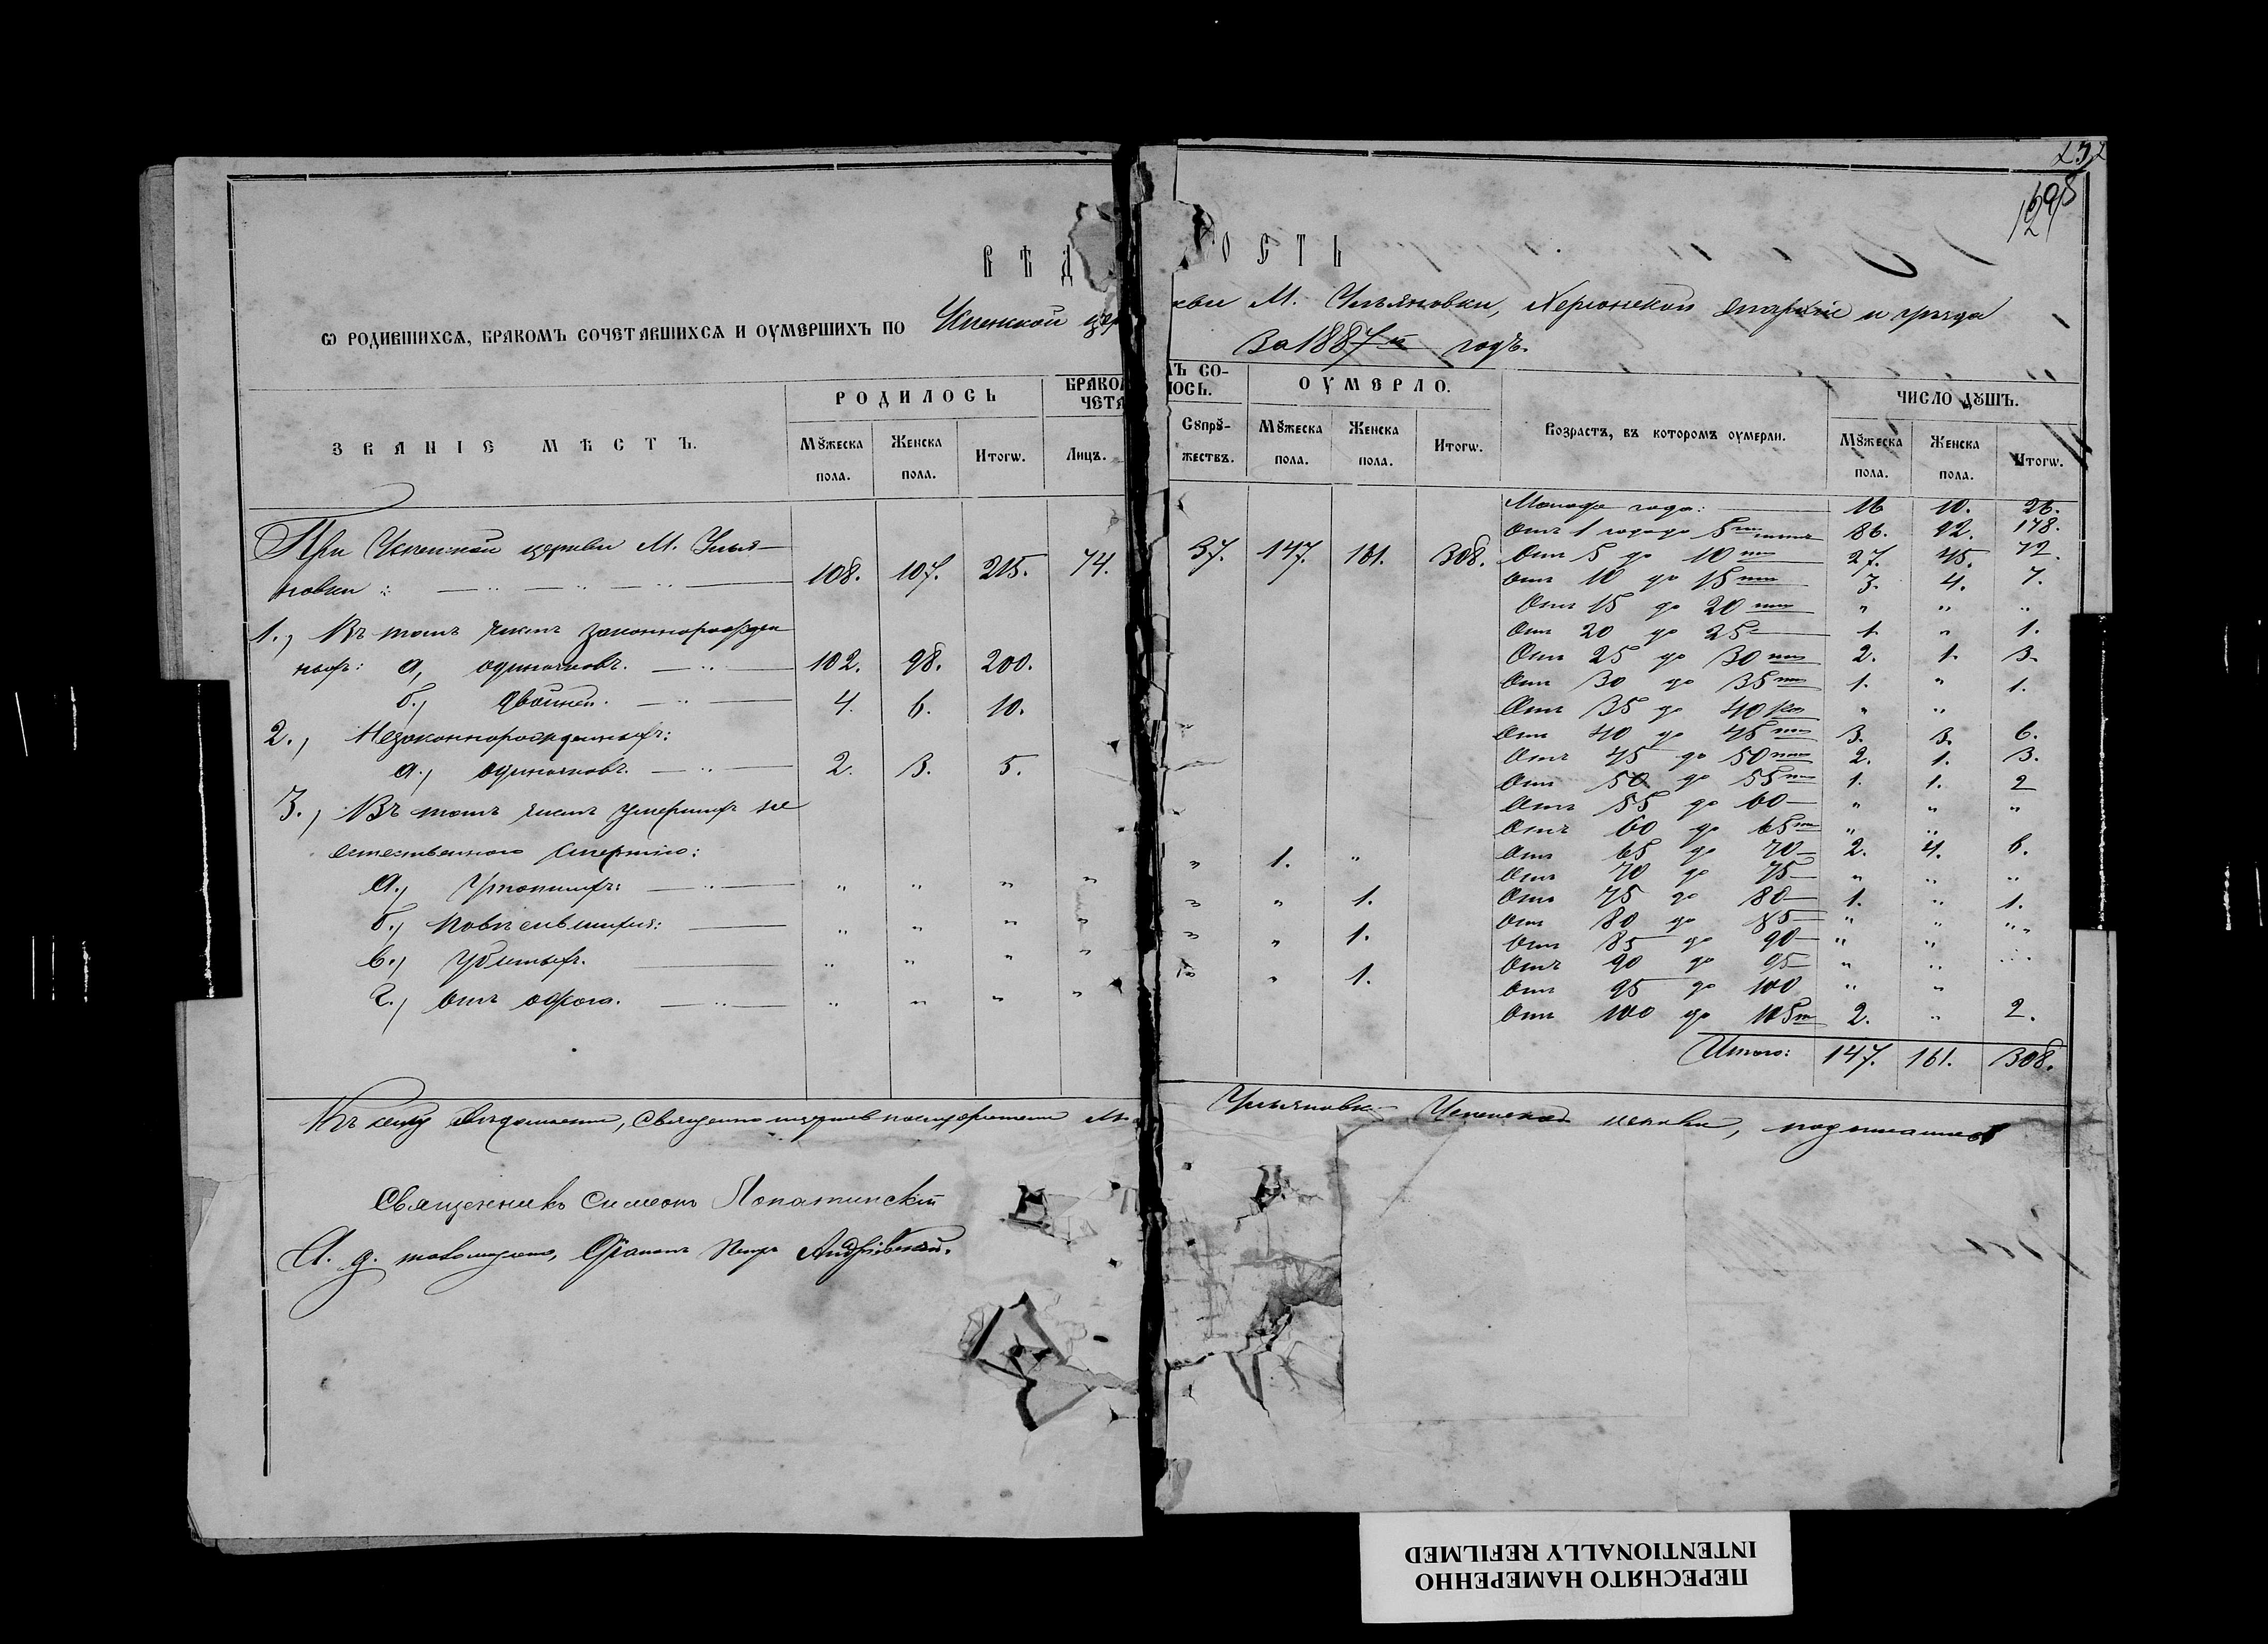 252
129
ВѢД ОСТЬ
Ѡ РОДИВШИХСѦ, БРАКОМЪ СОЧЕТАВШИХСѦ И ОУМЕРШИХЪ ПО Успенской церкви М. Ульяновки, Херсонской Епархіи и уѣзда
За 1887й годъ.
ЗВАНІЕ МѢСТЪ.
РОДИЛОСЬ
Мꙋжеска пола.
Женска пола.
Итогѡ.
БРАКОМЪ СО-
ЧЕТАЛОСЬ.
Лицъ.
Сꙋпрꙋ-
жествъ.
ОУМЕРЛО.
Мꙋжеска пола.
Женска пола.
Итогѡ.
Возрастъ, въ которомъ оумерли.
ЧИСЛО ДꙊШЪ.
Мꙋжеска пола.
Женска пола.
Итогѡ.
При Успенской церкви М. Улья-
новки: 108. 107. 215. 74. 37. 147. 161. 308.
1., Въ томъ числѣ законнорожден
ныхъ: а., одиночковъ. 102. 98. 200.
б., двойней. 4. 6. 10.
2., Незаконнорожденныхъ:
а., одиночковъ. 2. 3. 5.
3., Въ томъ числѣ умершихъ не
естественною смертію:
а., Утопшихъ: " " " " " 1. "
б., повѣсившихся: " " " " " " 1.
в., Убитыхъ. " " " " " " 1.
г., Отъ ожога. " " " " " " 1.
Моложе года: 16 10. 26.
Отъ 1 года до 5ти лѣтъ 86. 92. 178.
Отъ 5 до 10ти 27. 45. 72.
Отъ 10 до 15ти 3. 4. 7.
Отъ 15 до 20ти " " "
Отъ 20 до 25 1. " 1.
Отъ 25 до 30ти 2. 1. 3.
Отъ 30 до 35ти 1. " 1.
Отъ 35 до 40 " "
Отъ 40 до 45ти 3. 3. 6.
Отъ 45 до 50ти 2. 1. 3.
Отъ 50 до 55ти 1. 1. 2
Отъ 55 до 60 " " "
Отъ 60 до 65ти " "
Отъ 65 до 70 2. 4. 6.
Отъ 70 до 75 " " "
Отъ 75 до 80 1. " 1.
Отъ 80 до 85 " " "
Отъ 85 до 90 " "
Отъ 90 до 95 " " "
Отъ 95 до 100 " "
Отъ 100 до 105ти 2. " 2.
Итого: 147. 161. 308.
Къ сей Вѣдомости, Священно церковнослужители М. Ульяновки Успенской церкви, подписались
Священникъ Симеонъ Лопатинскій
И. д. псаломщика, Діаконъ Петръ Андріевскій.
ПЕРЕСНЯТО НАМЕРЕННО
INTENTIONALLY REFILMED